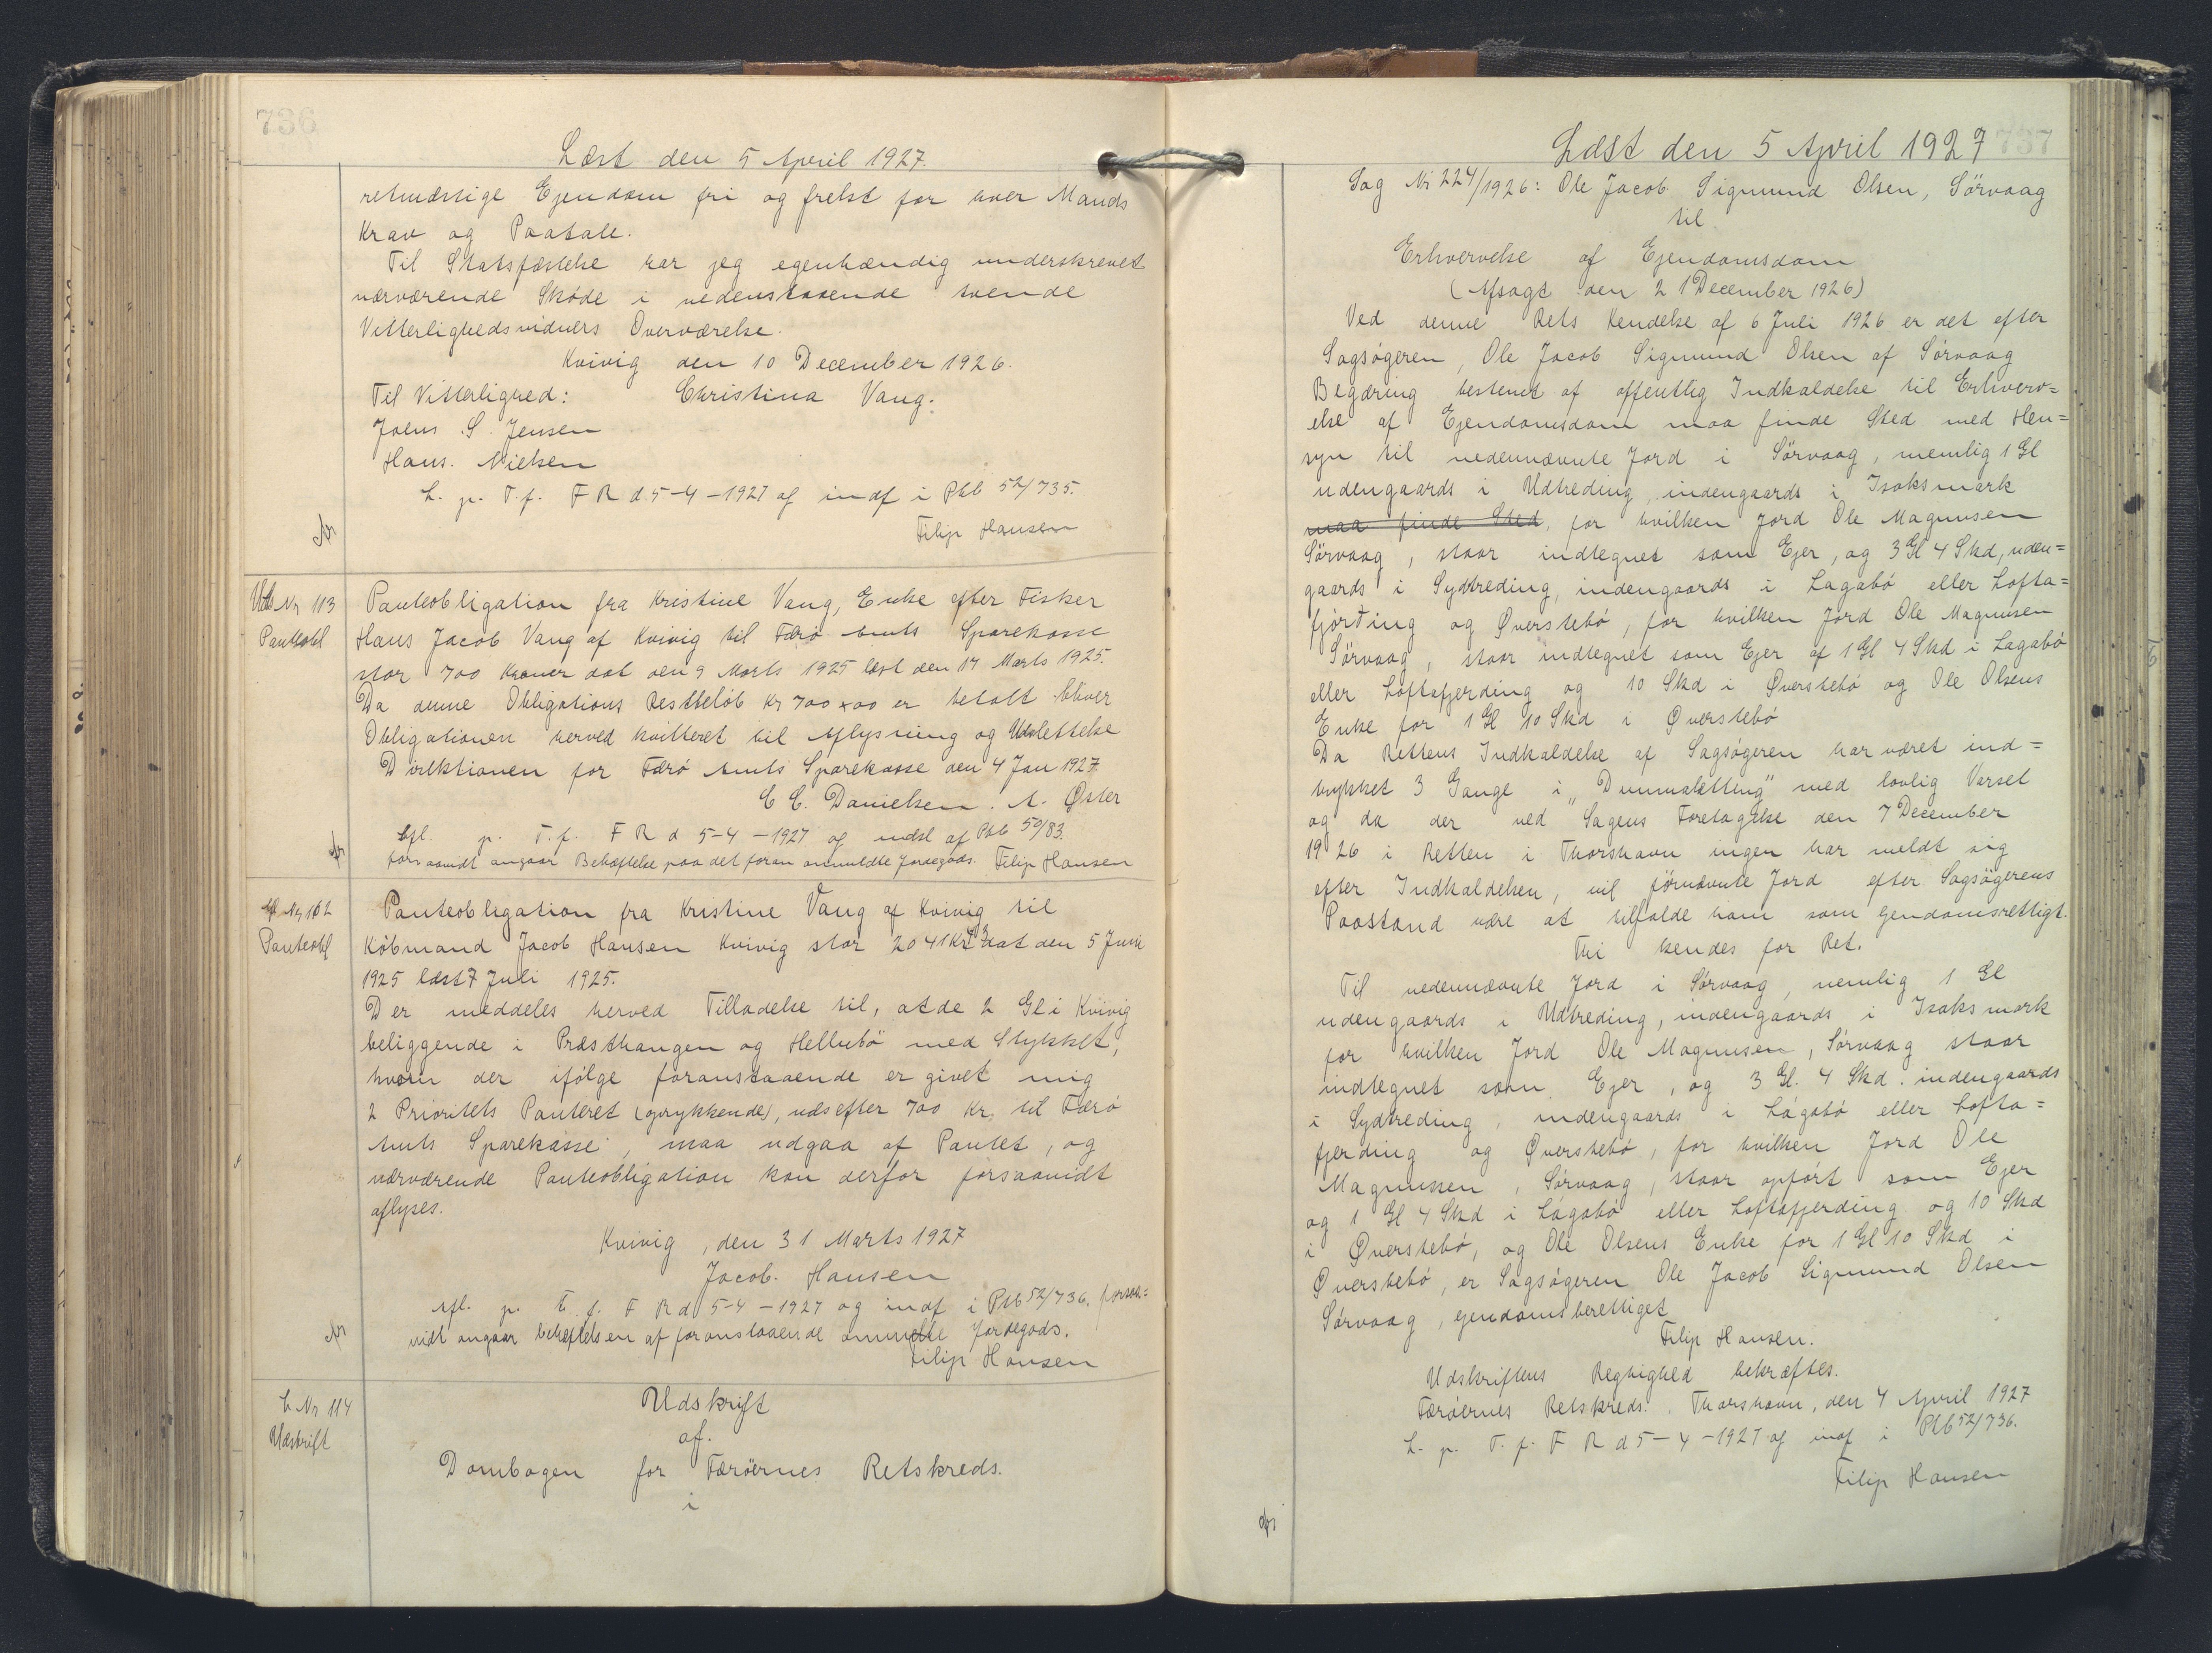 736
Læst den 5 April 1927.
retmæstige Ejendom fri og frelst for hver Mands
Krav og Paatale.
Til Statsfæstelse har jeg egenhændig underskrevet
nærværende Skøde i nedenstaaende tvende
Vitterlighedsvidners Overværelse.
Kvivig den 10 December 1926.
Til Vitterlighed: Christina Vang.
Joen S. Jensen
Hans. Nielsen
L. p. T. f. F R d. 5-4-1927 og indf i Pkb 52/735.
Filip Hansen
Uds Nr 113
Panteobl
Panteobligation fra Kristine Vang, Enke efter Fisker
Hans Jacob Vang af Kvivig til Færø Amts Sparekasse
stor 700 Kroner dat den 9 Marts 1925 læst den 17 Marts 1925.
Da denne Obligations Restbeløb Kr 700 x 00 er betalt bliver
Obligationen herved kvitteret til Aflysning og Udslettelse
Direktionen for Færø Amts Sparekasse den 4 Jan 1927
C C. Danielsen. A. Øster
Afl. p. T. f. F R d 5-4-1927 og udsl af Pkb 50/83.
forsaavidt angaar Behæftelse paa det foran anmeldte Jordegods. Filip Hansen
Afl Nr 162
Panteobl
Panteobligation fra Kristine Vang af Kvivig til
Købmand Jacob Hansen Kvivig stor 2041 Kr dat den 5 Juni
1925 læst 7 Juli 1925.
Der meddeles herved Tilladelse til, at de 2 Gl i Kvivig
beliggende i Præsthangen og Hellubø med Stykket,
hvori der ifølge foranstaaende er givet mig
2 Prioritets Panteret (oprykkende), næst efter 700 Kr. til Færø
Amts Sparekasse, maa udgaa af Pantet, og
nærværende Panteobligation kan derfor forsaavidt
aflyses.
Kvivig, den 31 Marts 1927
Jacob. Hansen
Afl. p. T. f. F R d 5-4-1927 og indf i Pkb 52/736. forsaa-
vidt angaar behæftelsen af foranstaaende anmeldte Jordegods.
Filip Hansen
L Nr 114
Udskrift
Udskrift
af.
Dombogen for Færøernes Retskreds.
i
737
Læst den 5 April 1927
Sag Nr 224/1926: Ole Jacob Sigmund Olsen, Sörvaag
til
Erhvervelse af Ejendomsdom
(Afsagt den 21 December 1926)
Ved denne Rets Kendelse af 6 Juli 1926 er det efter
Sagsøgeren, Ole Jacob Sigmund Olsen af Sörvaag
Begæring bestemt at offentlig Indkaldelse til Erhverv=
else af Ejendomsdom maa finde Sted med Hen=
syn til nedennævnte Jord i Sörvaag, nemlig 1 Gl
udengaards i Udtreding indengaards i Isaksmark
maa finde Sted, for hvilken Jord Ole Magnusen
Sörvaag, staar indtegnet som Ejer, og 3 Gl 4 Skd, uden=
gaards i Sydtreding, indengaards i Lagabø eller Lofta=
fjørting og Øverstebø, for hvilken Jord Ole Magnusen
Sörvaag, staar indtegnet som Ejer af 1 Gl 4 Skd i Lagabø
eller Loftafjerding og 10 Skd i Øverstebø og Ole Olsens
Enke for 1 Gl 10 Skd i Øverstebø
Da Rettens Indkaldelse af Sagsøgeren har været ind=
trykket 3 Gange i "Dimmalætting" med lovlig Varsel
og da der ved Sagens Foretagelse den 7 December
1926 i Retten i Thorshavn ingen har meldt sig
efter Indkaldelsen, vil førnævnte Jord efter Sagsøgerens
Paastand være at tilfalde ham som ejendomsrettigt.
Thi kendes for Ret.
Til nedennævnte Jord i Sørvaag, nemlig 1 Gl
udengaards i Udtreding, indengaards i Isaksmark
for hvilken Jord Ole Magnusen, Sørvaag staar
indtegnet som Ejer, og 3 Gl. 4 Skd. indengaards
i Sydtreding, indengaards i Lágabø eller Lofta=
fjerding og Øverstebø, for hvilken Jord Ole
Magnussen, Sørvaag, staar opført som Ejer
og 1 Gl 4 Skd i Lágabø eller Loftafjerding og 10 Skd
i Øverstebø, og Ole Olsens Enke for 1 Gl 10 Skd i
Øverstebø, er Sagsøgeren Ole Jacob Sigmund Olsen
Sørvaag, ejendomsberettiget
Filip Hansen.
Udskriftens Regtighed bekræftes.
Færøernes Retskreds. Thorshavn, den 4 April 1927
L. p. T. f. F R d 5-4-1927 og indf i Pkb 52/736.
Filip Hansen